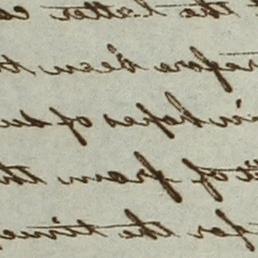 the latter
refore been
in hopes of
of from
for the time